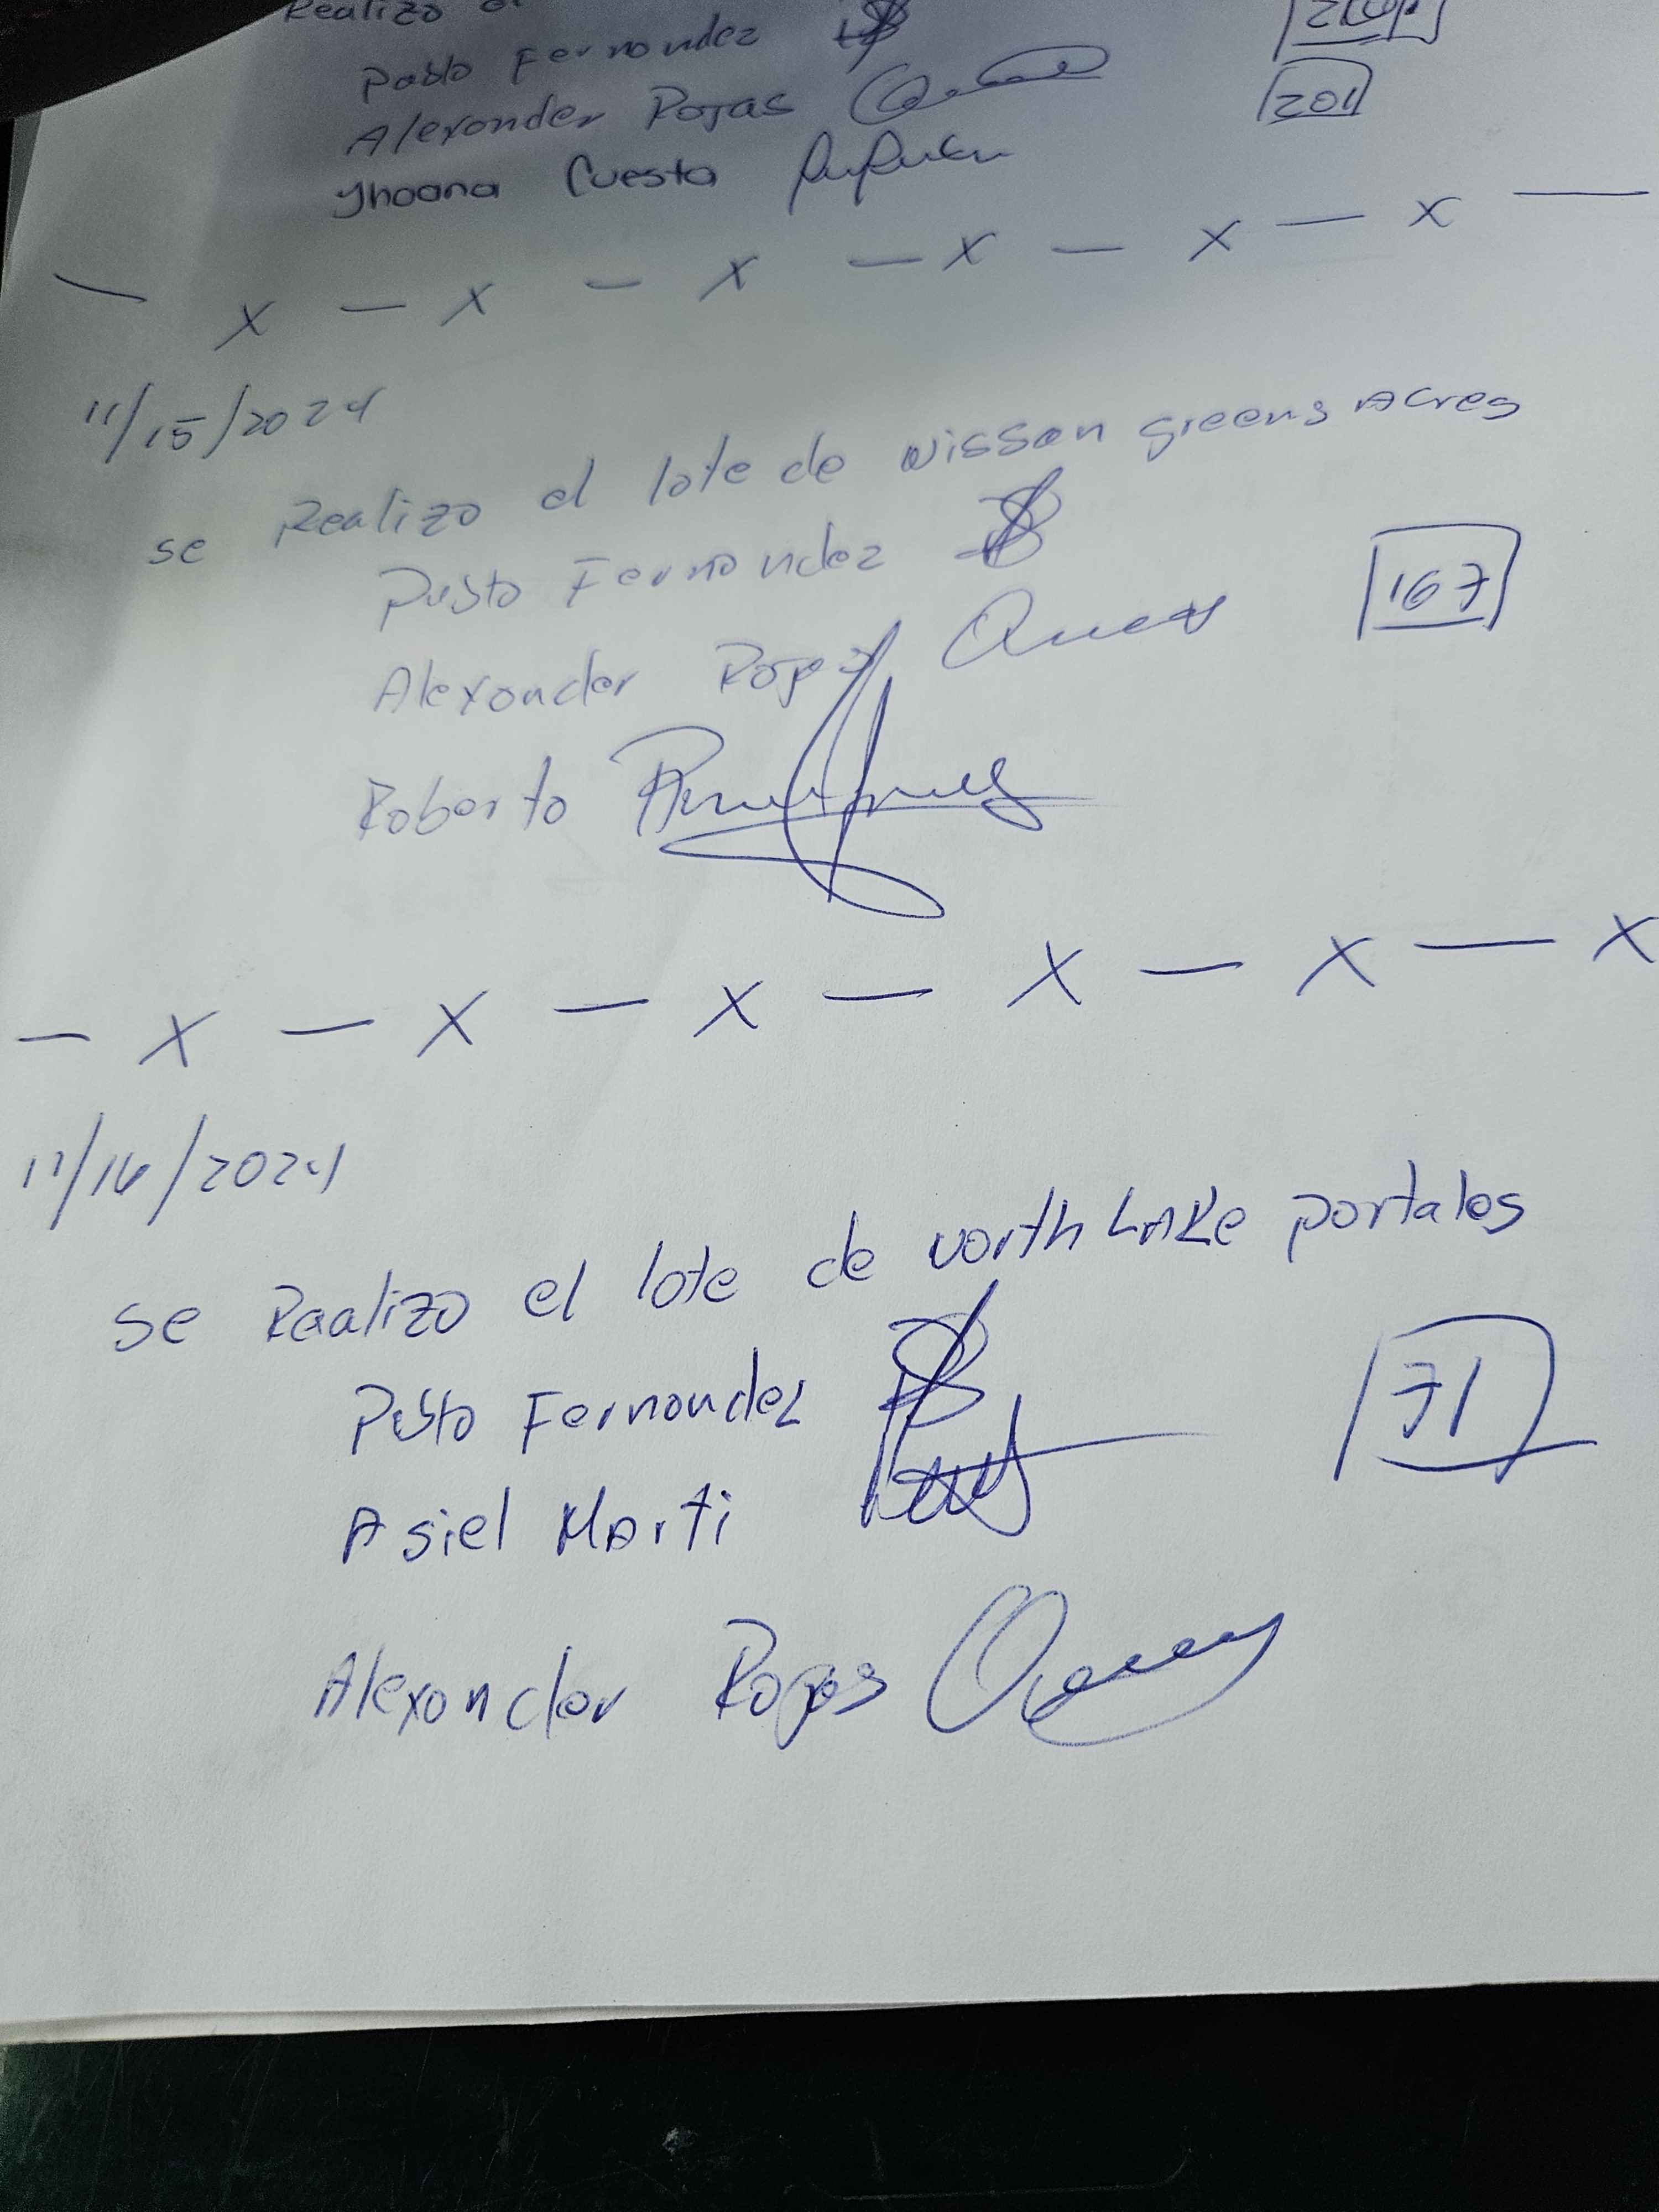 Realizo el
Pablo Fernandez
Alexander Rojas
201
Yhoana Cuesta
— x — x — x — x — x — x —
11/15/2024
se Realizo el lote de Nissan greens Acres
Pablo Fernandez
167
Alexander Rojas
Roberto
— x — x — x — x — x — x
11/16/2024
se Raalizo el lote de north LAKe portales
Pablo Fernandez
71
Asiel Marti
Alexander Rojas